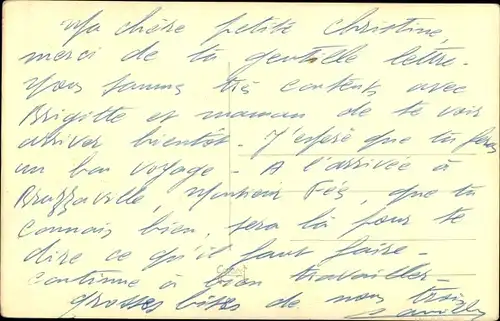 Ma chère petite Christine,
merci de ta gentille lettre.
Nous sommes très contents avec
Brigitte et maman de te voir
arriver bientôt. J'espère que tu feras
un bon voyage. A l'arrivée à
Brazzaville, Monsieur que tu
connais bien, sera là pour te
dire ce qu'il faut faire.
continue à bien travailler.
grosses bises de nous trois